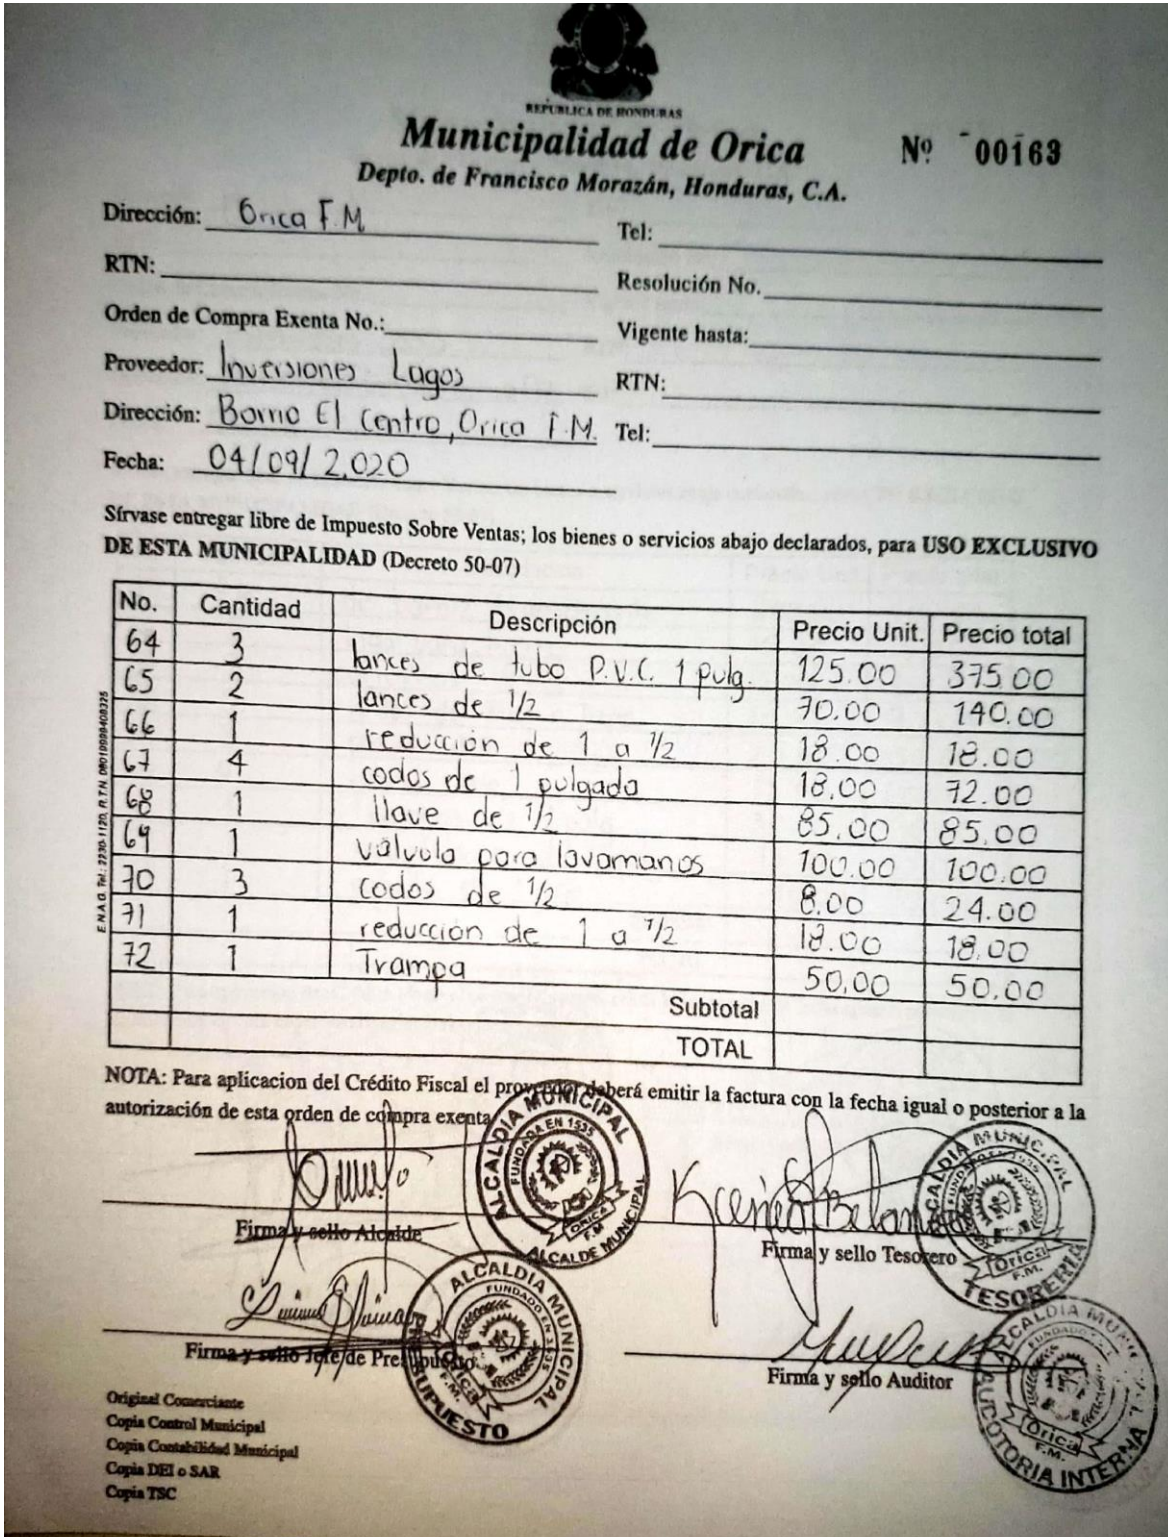 REPUBLICA DE HONDURAS
Municipalidad de Orica
Nº 00163
Depto. de Francisco Morazán, Honduras, C.A.
Dirección: Orica F.M
Tel:
RTN:
Resolución No.
Orden de Compra Exenta No.:
Vigente hasta:
Proveedor: Inversiones Lagos
RTN:
Dirección: Barrio El Centro, Orica F.M.
Tel:
Fecha: 04/09/2,020
Sírvase entregar libre de Impuesto Sobre Ventas; los bienes o servicios abajo declarados, para USO EXCLUSIVO
DE ESTA MUNICIPALIDAD (Decreto 50-07)
No. Cantidad Descripción Precio Unit. Precio total
64 3 lances de tubo P.V.C. 1 pulg. 125.00 375.00
65 2 lances de 1/2 70.00 140.00
66 1 reducción de 1 a 1/2 18.00 18.00
67 4 codos de 1 pulgada 18.00 72.00
68 1 llave de 1/2 85.00 85.00
69 1 valvula para lavamanos 100.00 100.00
70 3 codos de 1/2 8.00 24.00
71 1 reducción de 1 a 1/2 18.00 18.00
72 1 Trampa 50.00 50.00
Subtotal
TOTAL
NOTA: Para aplicacion del Crédito Fiscal el proveedor deberá emitir la factura con la fecha igual o posterior a la
autorización de esta orden de compra exenta
ALCALDIA MUNICIPAL
FUNDADA EN 1535
ORICA
F.M
ALCALDE MUNICIPAL
Firma y sello Alcalde
ALCALDIA MUNICIPAL
Orica
F.M.
TESORERIA
Firma y sello Tesorero
ALCALDIA MUNICIPAL
Orica
F.M.
PRESUPUESTO
Firma y sello Jefe de Presupuesto
Orica
F.M.
INTERNA
Firma y sello Auditor
Original Comerciante
Copia Control Municipal
Copia Contabilidad Municipal
Copia DEI o SAR
Copia TSC